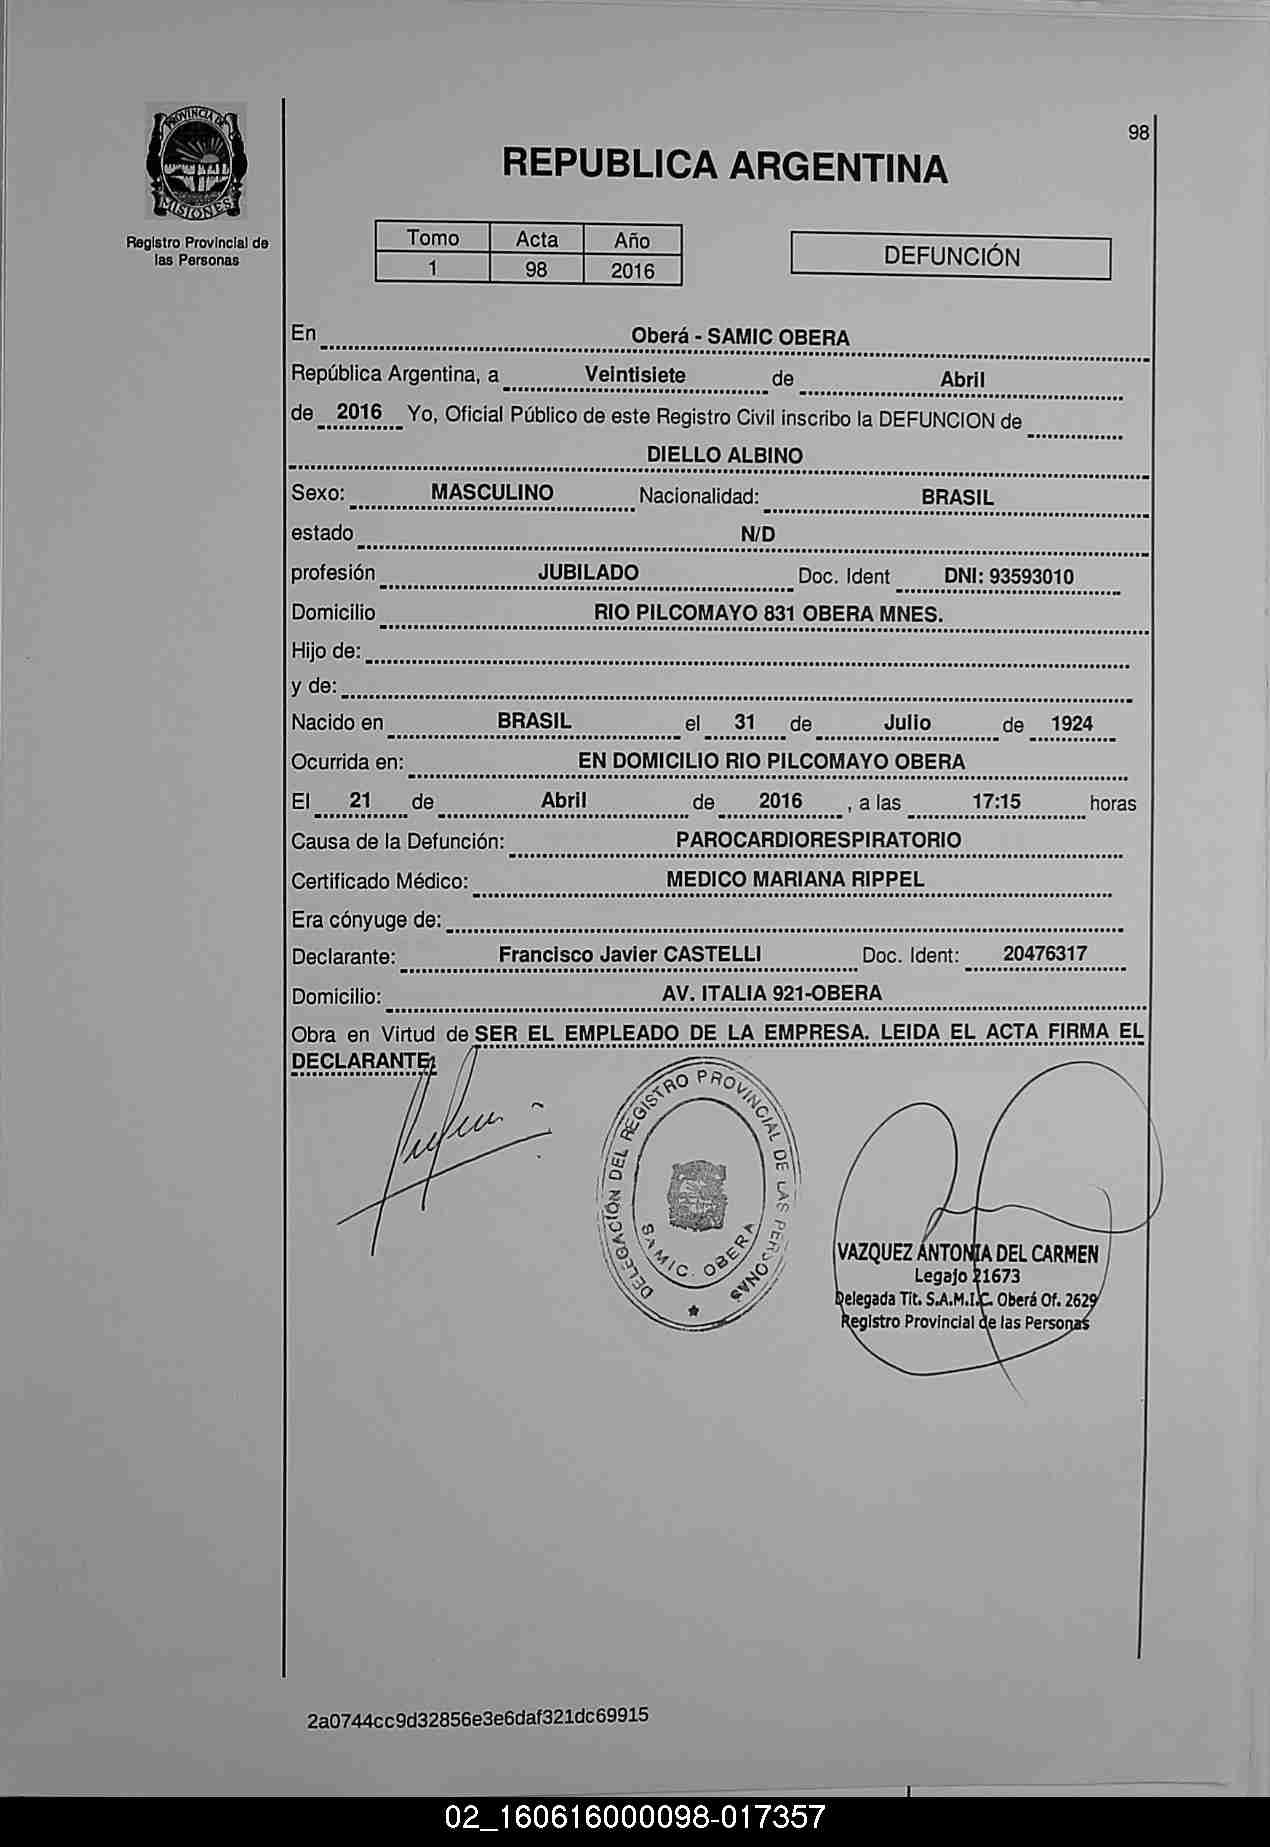 98
PROVINCIA DE
MISIONES
Registro Provincial de
las Personas
REPUBLICA ARGENTINA
Tomo Acta Año
1 98 2016
DEFUNCIÓN
En Oberá - SAMIC OBERA
República Argentina, a Veintisiete de Abril
de 2016 Yo, Oficial Público de este Registro Civil inscribo la DEFUNCION de
DIELLO ALBINO
Sexo: MASCULINO Nacionalidad: BRASIL
estado N/D
profesión JUBILADO Doc. Ident DNI: 93593010
Domicilio RIO PILCOMAYO 831 OBERA MNES.
Hijo de:
y de:
Nacido en BRASIL el 31 de Julio de 1924
Ocurrida en: EN DOMICILIO RIO PILCOMAYO OBERA
El 21 de Abril de 2016 , a las 17:15 horas
Causa de la Defunción: PAROCARDIORESPIRATORIO
Certificado Médico: MEDICO MARIANA RIPPEL
Era cónyuge de:
Declarante: Francisco Javier CASTELLI Doc. Ident: 20476317
Domicilio: AV. ITALIA 921-OBERA
Obra en Virtud de SER EL EMPLEADO DE LA EMPRESA. LEIDA EL ACTA FIRMA EL
DECLARANTE
DELEGACIÓN DEL REGISTRO PROVINCIAL DE LAS PERSONAS
SAMIC. OBERA
VAZQUEZ ANTONIA DEL CARMEN
Legajo 21673
Delegada Tit. S.A.M.I.C. Oberá Of. 2629
Registro Provincial de las Personas
2a0744cc9d32856e3e6daf321dc69915
02_160616000098-017357